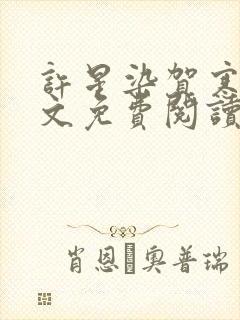 許星染賀寒
文免費閱讀
肖恩·奧普瑞